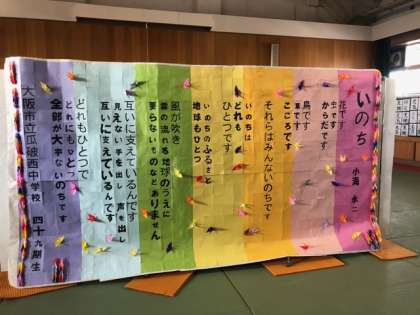 いのち
小海 永二
花です
虫です
からだです
鳥です
草です
こころです
それらはみんないのちです
いのちは
どれも
ひとつです
いのちのふるさと
地球もひとつ
風が吹き
雲の流れる地球のうえに
要らないものなどありません
互いに支えているんです
見えない手を出し 声を出し
互いに支えているんです
どれもひとつで
どれにもひとつ
全部が大事ないのちです
大阪市立瓜破西中学校 四十九期生